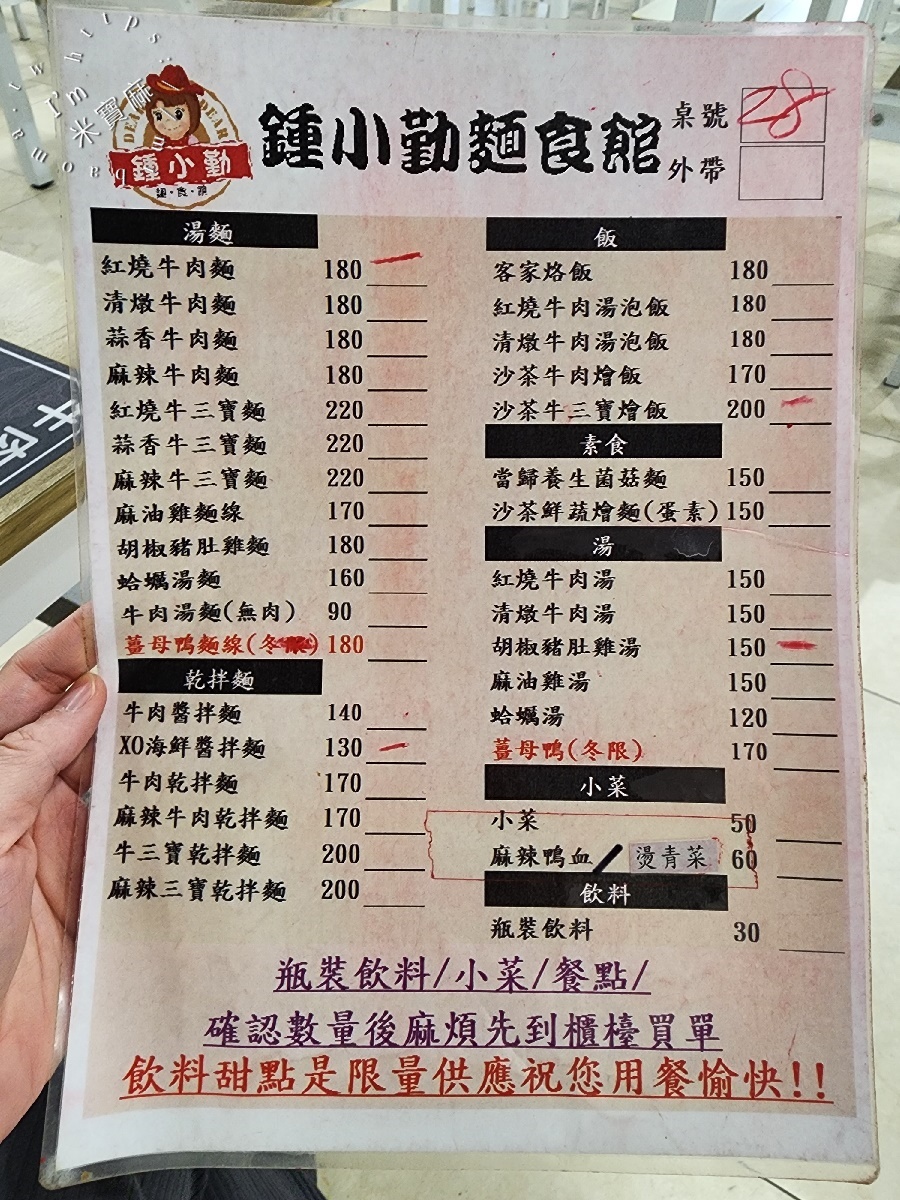 米寶麻
I'm
DEAR DEAR
鍾小勤
麵・食・館
鍾小勤麵食館
桌號 28
外帶
湯麵
紅燒牛肉麵 180
清燉牛肉麵 180
蒜香牛肉麵 180
麻辣牛肉麵 180
紅燒牛三寶麵 220
蒜香牛三寶麵 220
麻辣牛三寶麵 220
麻油雞麵線 170
胡椒豬肚雞麵 180
蛤蠣湯麵 160
牛肉湯麵(無肉) 90
薑母鴨麵線(冬限) 180
乾拌麵
牛肉醬拌麵 140
XO海鮮醬拌麵 130
牛肉乾拌麵 170
麻辣牛肉乾拌麵 170
牛三寶乾拌麵 200
麻辣三寶乾拌麵 200
飯
客家烙飯 180
紅燒牛肉湯泡飯 180
清燉牛肉湯泡飯 180
沙茶牛肉燴飯 170
沙茶牛三寶燴飯 200
素食
當歸養生菌菇麵 150
沙茶鮮蔬燴麵(蛋素) 150
湯
紅燒牛肉湯 150
清燉牛肉湯 150
胡椒豬肚雞湯 150
麻油雞湯 150
蛤蠣湯 120
薑母鴨(冬限) 170
小菜
小菜 50
麻辣鴨血/燙青菜 60
飲料
瓶裝飲料 30
瓶裝飲料/小菜/餐點/
確認數量後麻煩先到櫃檯買單
飲料甜點是限量供應祝您用餐愉快!!
牛肉